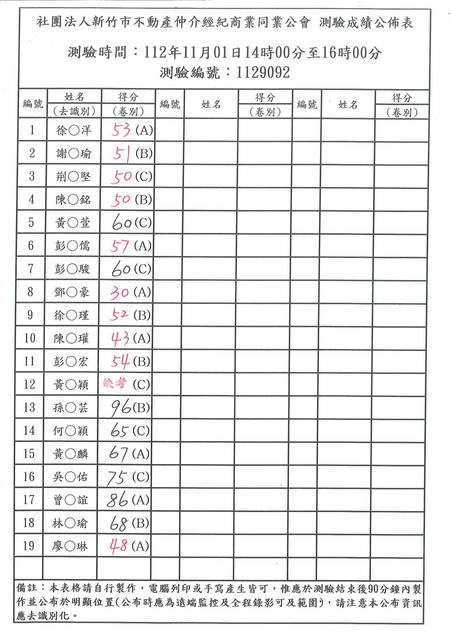 社團法人新竹市不動產仲介經紀商業同業公會 測驗成績公佈表
測驗時間：112年11月01日14時00分至16時00分
測驗編號：1129092
編號 姓名(去識別) 得分(卷別) 編號 姓名 得分(卷別) 編號 姓名 得分(卷別)
1 徐○洋 53(A)
2 謝○瑜 51(B)
3 荆○堅 50(C)
4 陳○銘 50(B)
5 黃○萱 60(C)
6 彭○儒 57(A)
7 彭○駿 60(C)
8 鄧○豪 30(A)
9 徐○瑾 52(B)
10 陳○瓘 43(A)
11 彭○宏 54(B)
12 黃○穎 缺考(C)
13 孫○芸 96(B)
14 何○穎 65(C)
15 黃○麟 67(A)
16 吳○佑 75(C)
17 曾○誼 86(A)
18 林○瑜 68(B)
19 廖○琳 48(A)
備註：本表格請自行製作，電腦列印或手寫產生皆可，惟應於測驗結束後90分鐘內製
作並公布於明顯位置(公布時應為遠端監控及全程錄影可及範圍)，請注意本公布資訊
應去識別化。